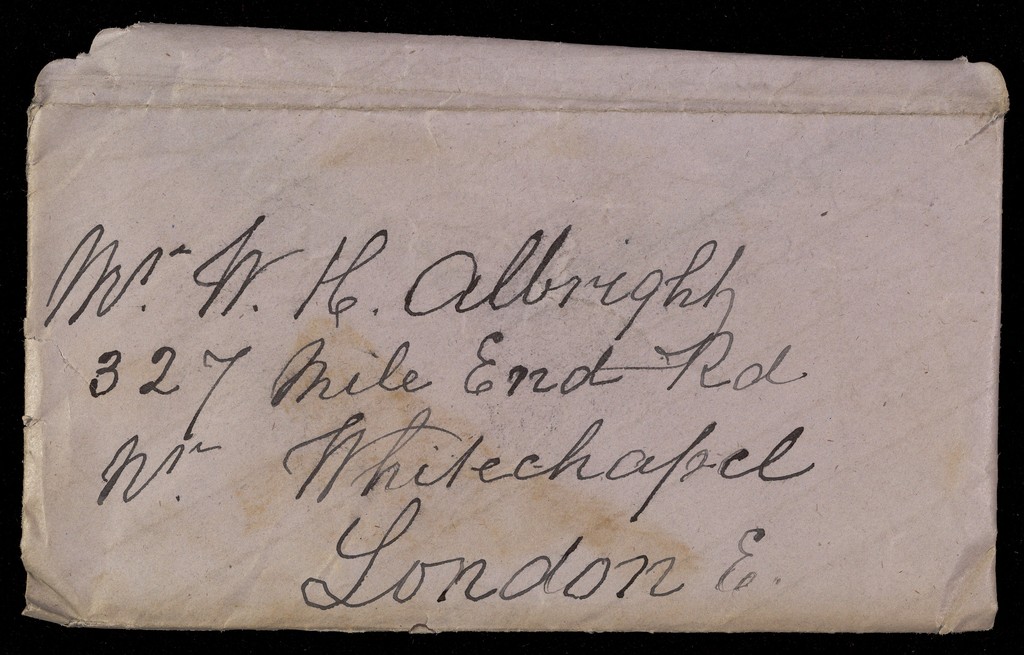 Mr. W. H. Albright
327 Mile End Rd
Nr. Whitechapel
London E.